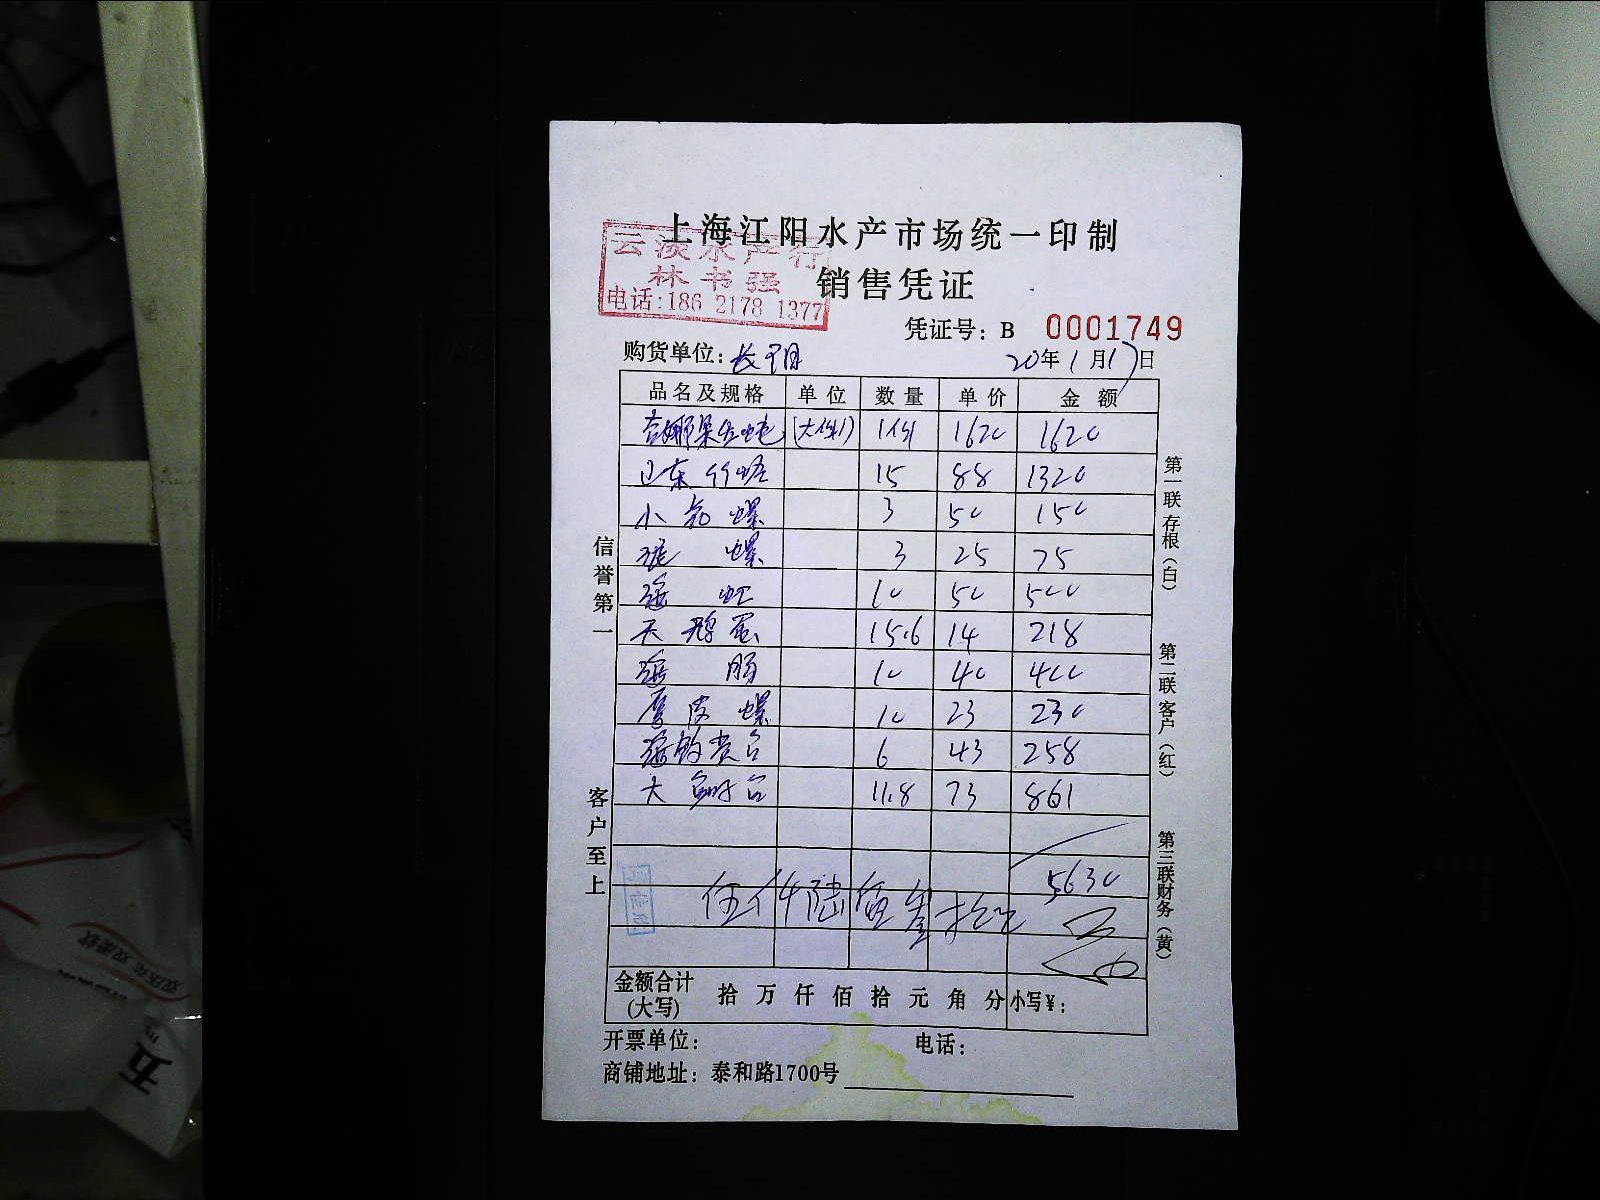 上海江阳水产市场统一印制
云淡水产行
林书强
电话:186 2178 1377
销售凭证
凭证号: B 0001749
购货单位: 长
20年1月17日
品名及规格 单位 数量 单价 金额
吉娜朵生蚝 (大件) 1件 1620 1620
辽东竹蛏 15 88 1320
小 螺 3 50 150
螺 3 25 75
海虹 10 50 500
天鹅蛋 15.6 14 218
海肠 10 40 400
厚皮螺 10 23 230
海 6 43 258
大 11.8 73 861
5630
伍仟陆佰叁拾元
金额合计(大写) 拾 万 仟 佰 拾 元 角 分 小写¥:
开票单位: 电话:
商铺地址: 泰和路1700号
信誉第一
客户至上
第一联 存根(白)
第二联 客户(红)
第三联 财务(黄)
五